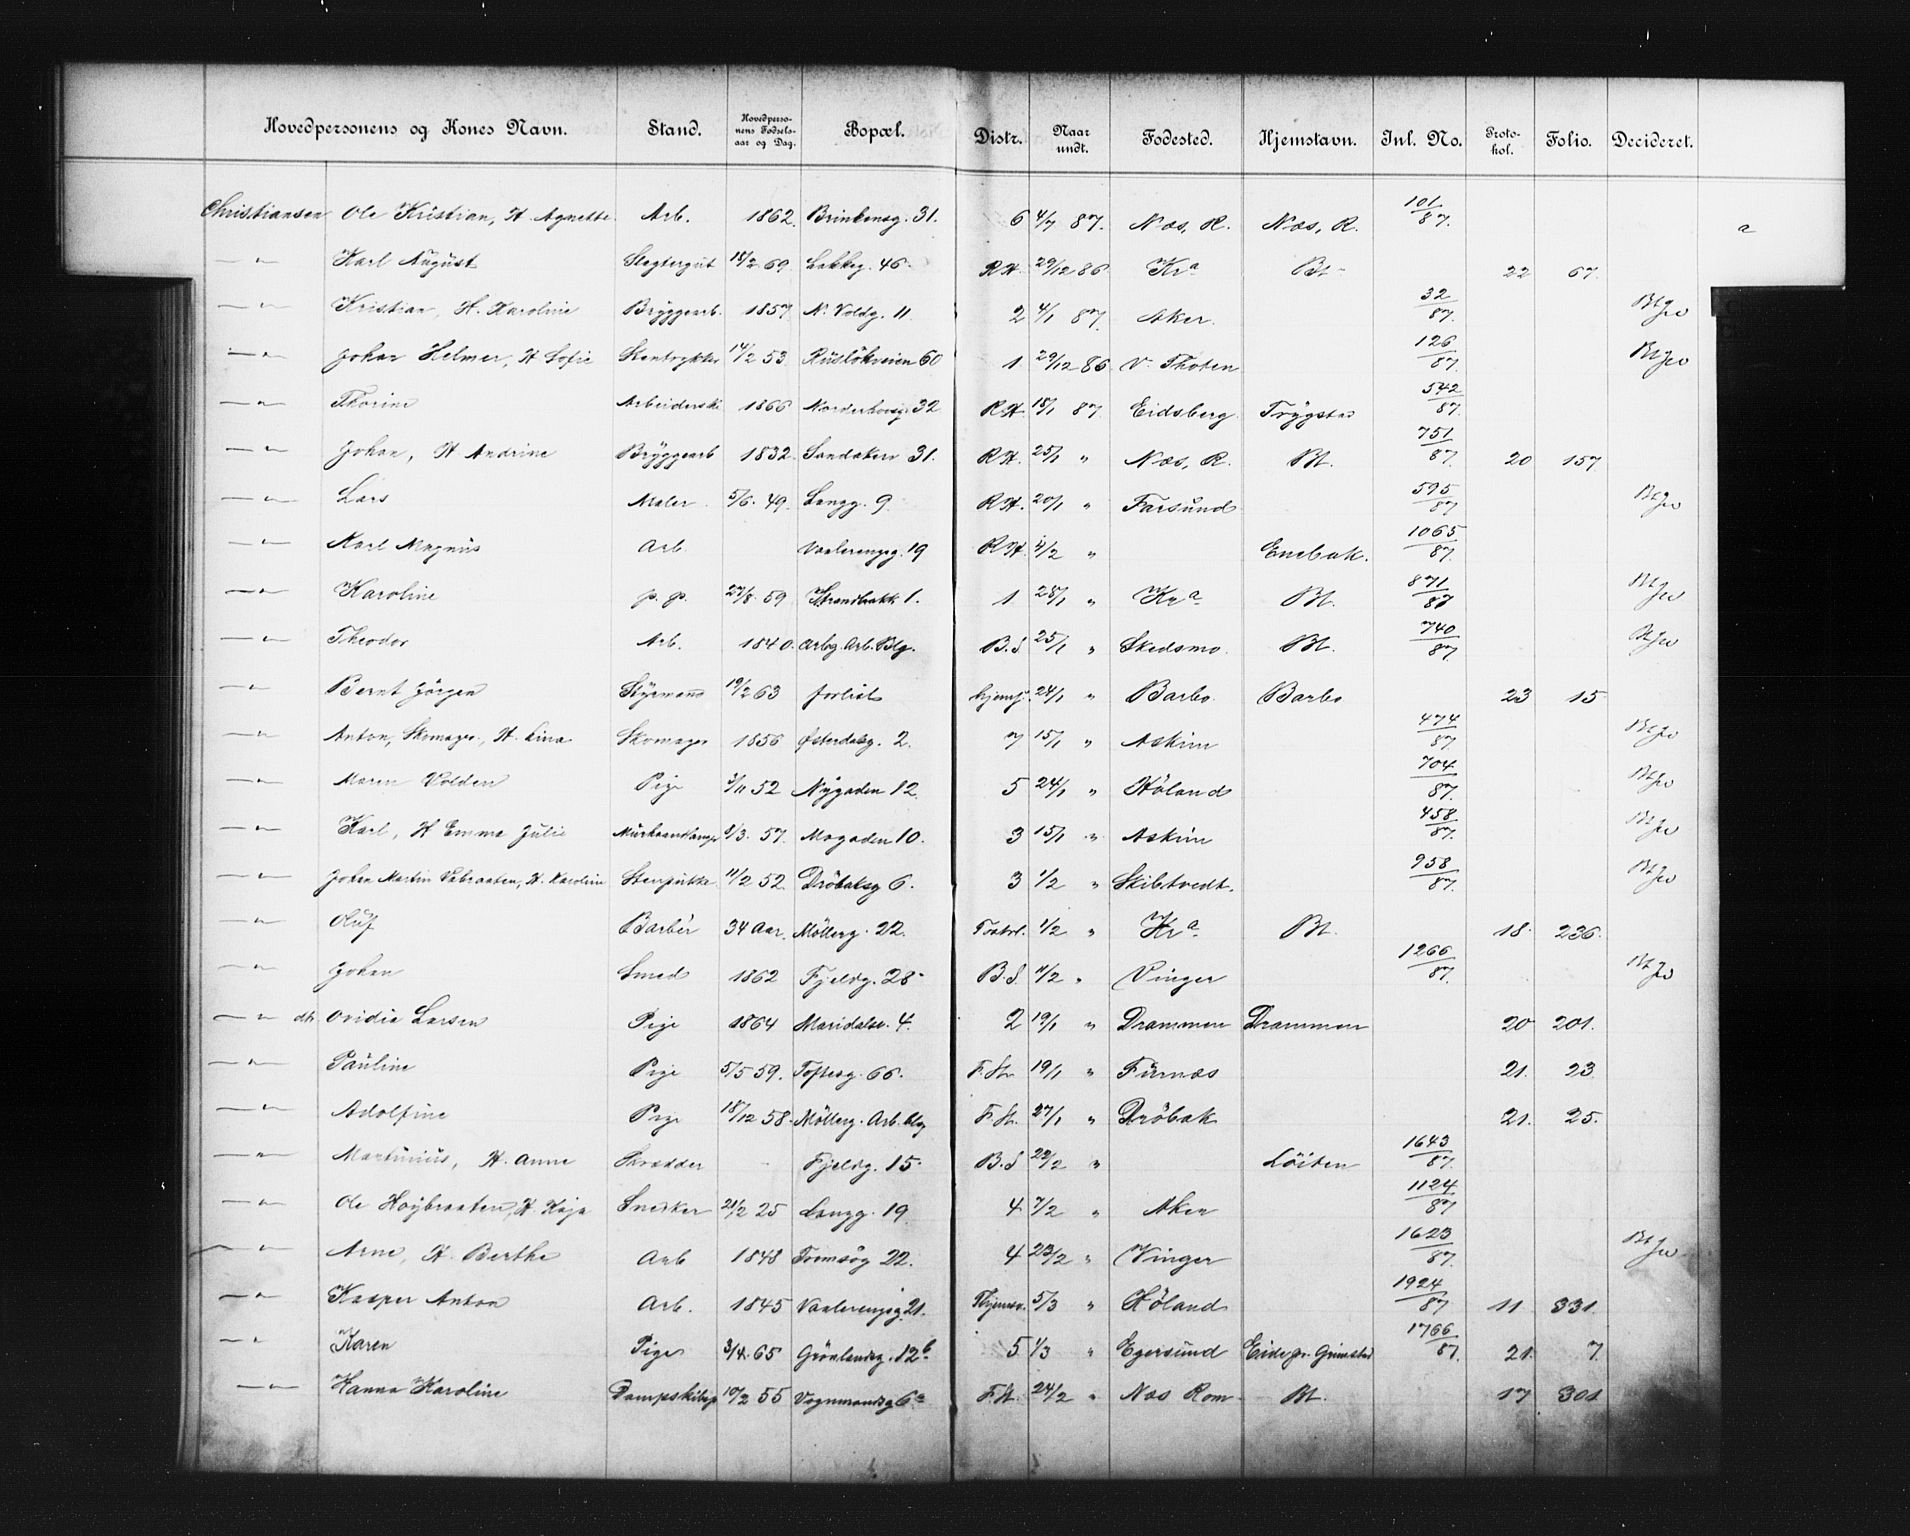 Hovedpersonens og Kones Navn. Stand. Hovedpersonens Fødselsaar og Dag. Bopæl. Distr. Naar undt. Fødested. Hjemstavn. Inl. No. Protokol. Folio. Decideret.
Christiansen Ole Kristian, H. Agnette Arb. 1862. Brinkensg. 31. 6 4/7 87. Næs, R. Næs, R. 101/87. a
—"— Karl August Slagtergut 18/2 69 Lakkeg. 46. R.H. 29/12 86 Kra Bt. 22 67.
—"— Kristian, H. Karoline Bryggearb. 1857 N. Voldg. 11 2 4/1 87. Aker. 32/87.
—"— Johan Helmer, H Sofie Stentrykker 14/2 53 Rusløkveien 60 1. 29/12 86 V. Thoten 126/87.
—"— Thorine Arbeiderske 1866 Norderhovsg. 32 R.H. 18/1 87. Eidsberg. Trygstad 542/87.
—"— Johan, H Andrine Bryggearb 1832. Sandakerv 31. R.H. 25/1 " Næs, R. Bt. 751/87. 20 157
—"— Lars Maler. 5/6. 49. Langg. 9. R.H. 20/1 " Farsund 595/87
—"— Karl Magnus Arb. Vaalerengsg. 19 R.H. 4/2 " Enebak. 1065/87.
—"— Karoline p. p. 27/8. 59 Strandbakk 1. 1 28/1 " Kra Bt. 871/87
—"— Theodor Arb. 1840. Arbg. Arb. Blg. B.S 25/1 " Skedsmo. Bt. 740/87.
—"— Bernt Jörgen Styrmand 19/2 63 forlist 24/1 " Barbo. Barbo 23 15
—"— Anton, Skomager, H. Lina Skomager 1856 Østerdalsg. 2. 7 15/1 " Askim 474/87
—"— Maren Volden Pige 3/11 52 Nygaden 12. 5 24/1 " Höland 704/87.
—"— Karl, H Emma Julie Murhaandlanger 2/3. 57. Mogaden 10. 3 15/1 " Askim 458/87.
—"— Johan Martin H. Karoline Stenpukker 11/2 52. Dröbaksg 6. 3 1/2 " Skibtvedt. 958/87.
—"— Oluf Barbér 34 Aar. Möllerg. 22. 1/2 " Kra Bt. 18. 236.
—"— Johan Smed 1862 Fjeldg. 28 B.S. 11/2 " Vinger 1266/87.
—"— Ovidia Larsen Pige 1864 Maridalsv. 4. 2 19/1 " Drammen Drammen 20 201.
—"— Pauline Pige 5/5 59. Toftesg. 66. F.St. 19/1 " Furnæs 21. 23
—"— Adolfine Pige 18/12 58. Möllerg. Arb. blg F.St. 27/1 " Dröbak 21. 25.
—"— Martinius, H. Anne Skrædder Fjeldg. 15 B.S 22/2 " Löiten 1643/87.
—"— Ole Höybraaten, H. Kaja Snedker 21/2 25 Langg. 19. 4. 7/2 " Aker 1124/87
—"— Arne, H. Berthe Arb 1848 Tromsög 22. 4 23/2 " Vinger 1623/87.
—"— Kasper Anton Arb. 1845 Vaalerengsg. 21. Hjemsv. 5/3 " Höland 1924/87 11 331.
—"— Karen Pige 3/4. 65 Grönlandsg. 12b 5. 1/3 " Egersund Eide pr. Grimstad 1766/87. 21. 7.
—"— Hanna Karoline Dampskibsp 10/2 55 Vognmandsg 6a F.St. 24/2 " Næs Rom. Bt. 17 301